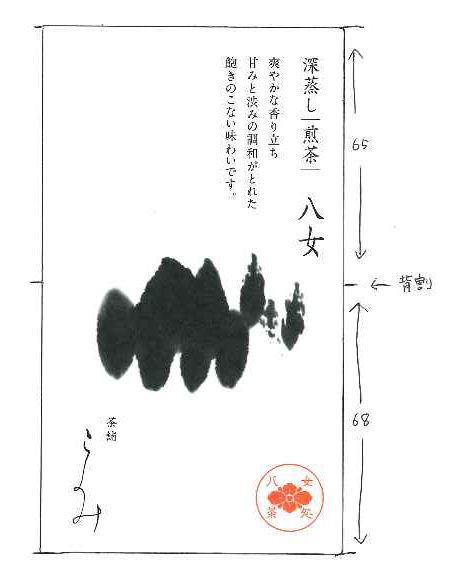 深蒸し|煎茶|
八女
爽やかな香り立ち
甘みと渋みの調和がとれた
飽きのこない味わいです。
65
←背割
68
茶舗
八女
茶処